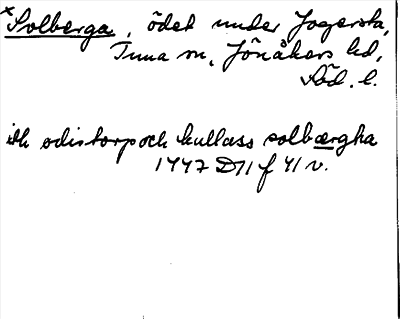 ×Solberga, ödet under Jogersta,
Tuna sn, Jönåkers hd,
Söd. l.
ith odistorp och kullass solbærgha
1447 D11 f 41 v.